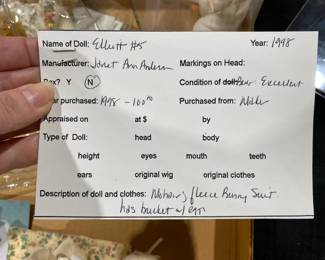 Name of Doll: Elliott #5 Year: 1998
Manufacturer: Janet Ann Anderson Markings on Head:
Box? Y N Condition of doll: Bear: Excellent
Year purchased: 1998 - 100 00 Purchased from: Maker
Appraised on at $ by
Type of Doll: head body
height eyes mouth teeth
ears original wig original clothes
Description of doll and clothes: Mohair; fleece Bunny Suit
has bucket w/ egg